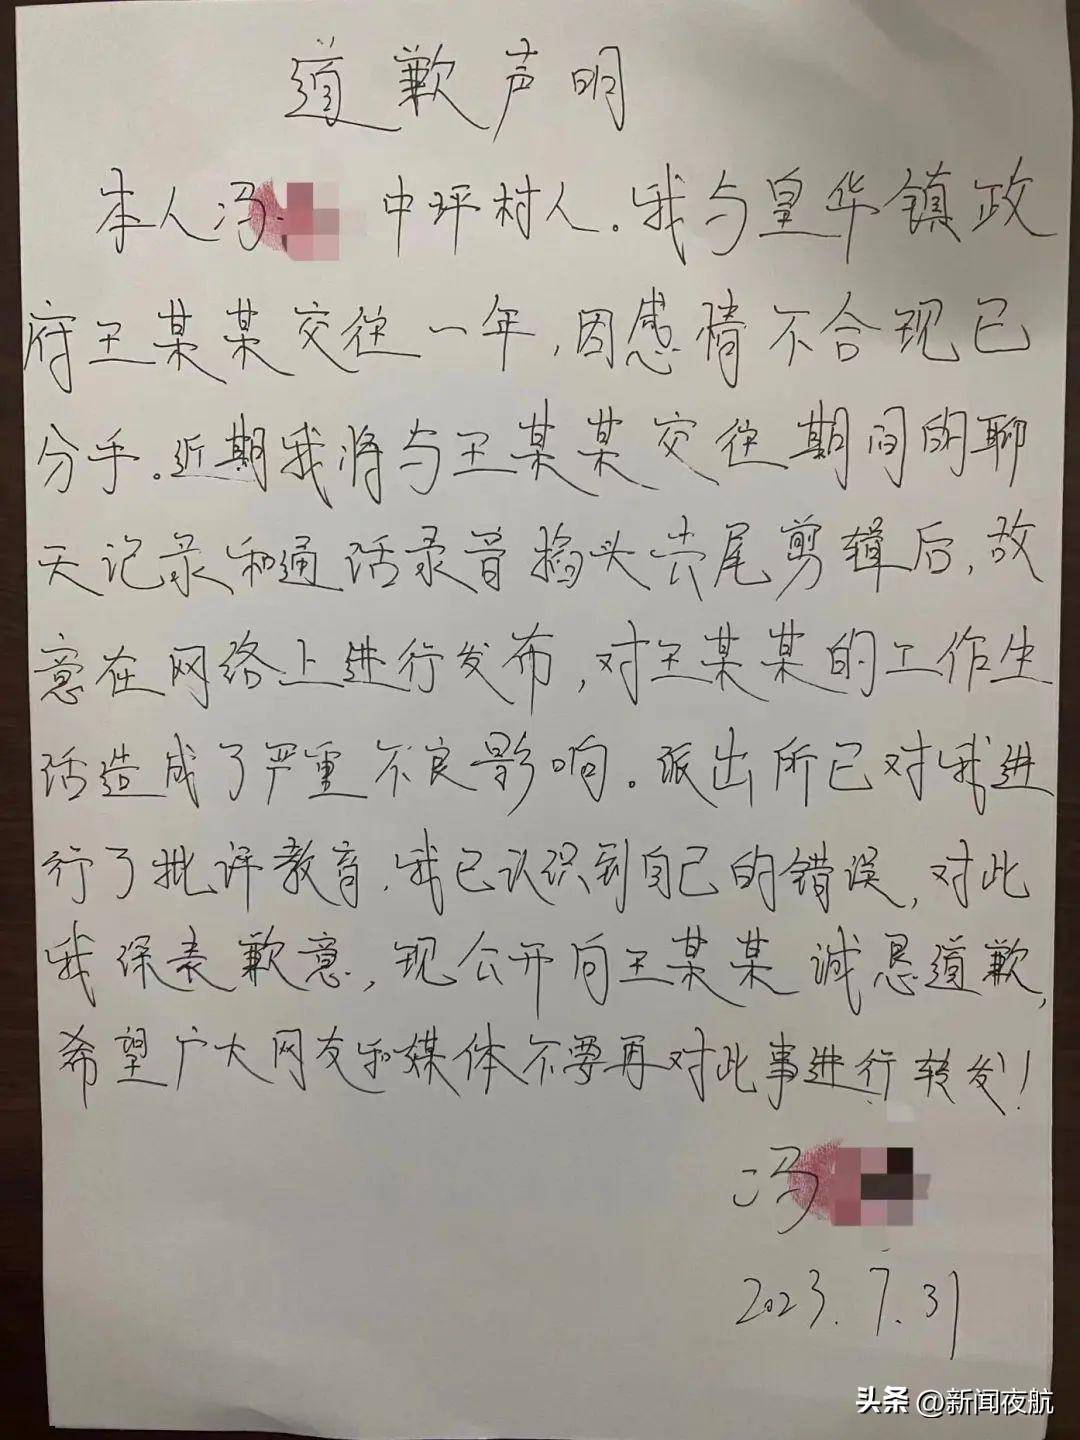 道歉声明
本人冯 中坪村人.我与皇华镇政
府王某某交往一年,因感情不合现已
分手.近期我将与王某某交往期间的聊
天记录和通话录音掐头去尾剪辑后,故
意在网络上进行发布,对王某某的工作生
活造成了严重不良影响.派出所已对我进
行了批评教育.我已认识到自己的错误,对此
我深表歉意,现公开向王某某诚恳道歉,
希望广大网友和媒体不要再对此事进行转发!
冯
2023.7.31
头条 @新闻夜航